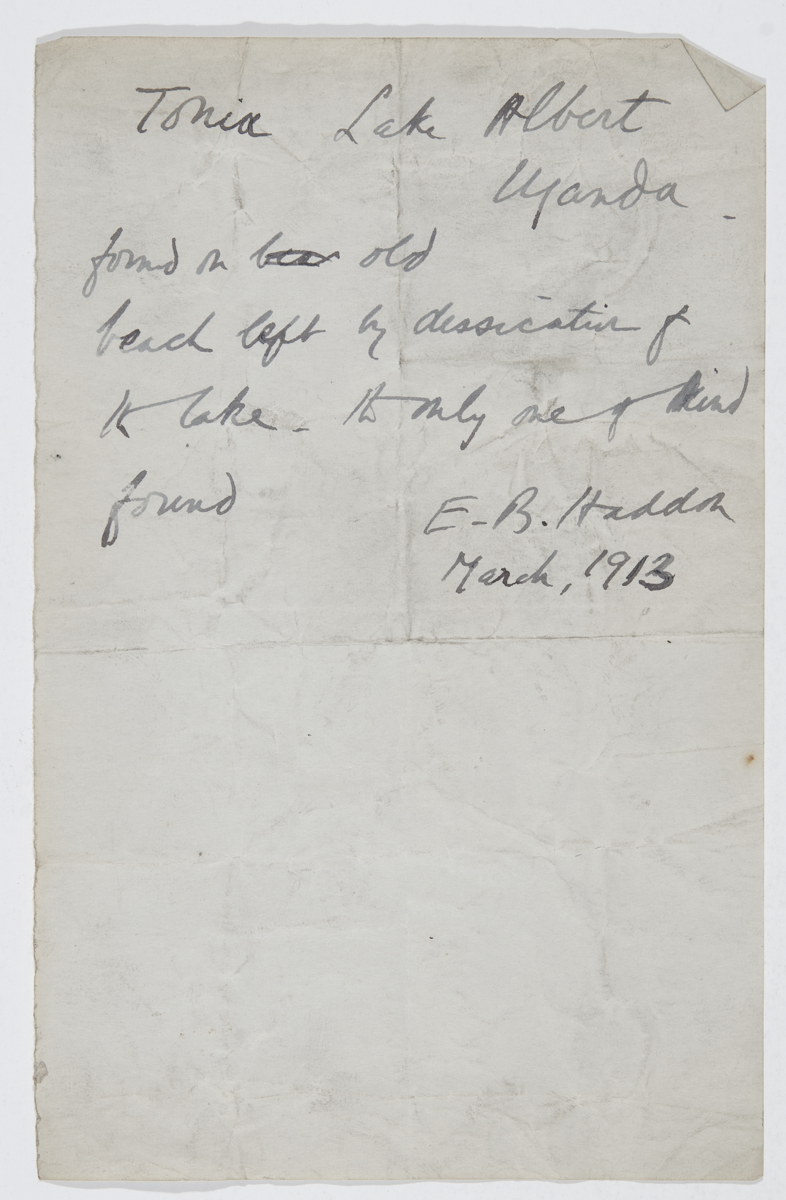 Tonia Lake Albert
Uganda -
found on bea old
beach left by dessication of
the lake - the only one of kind
found E-B. Haddon
March, 1913